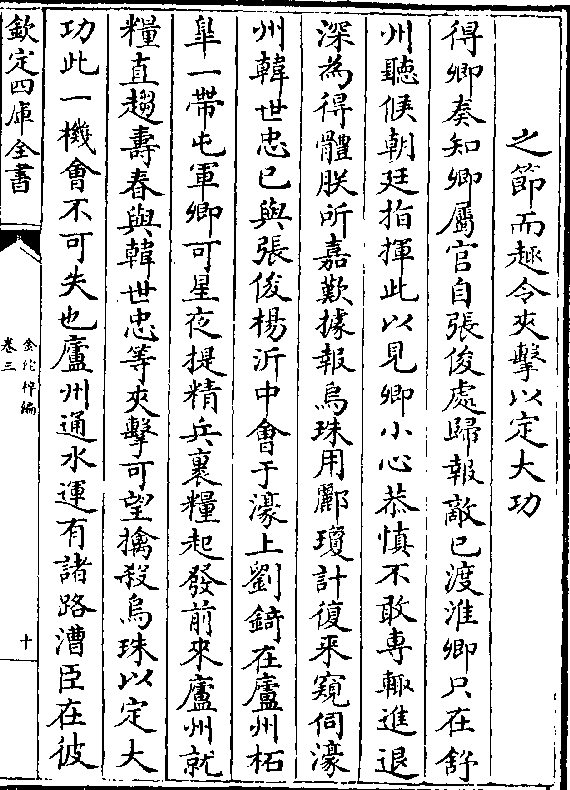 之節而趣令夾擊以定大功
得卿奏知卿屬官自張俊處歸報敵已渡淮卿只在舒
州聽候朝廷指揮此以見卿小心恭慎不敢専輙進退
深為得體朕所嘉歎據報烏珠用酈瓊計復来窺伺濠
州韓世忠已與張俊楊沂中會于濠上劉錡在廬州柘
臯一帶屯軍卿可星夜提精兵裹糧起發前來廬州就
糧直趨壽春與韓世忠等夾擊可望擒殺烏珠以定大
功此一機會不可失也廬州通水運有諸路漕臣在彼
欽定四庫全書
金佗稡編
卷三
十